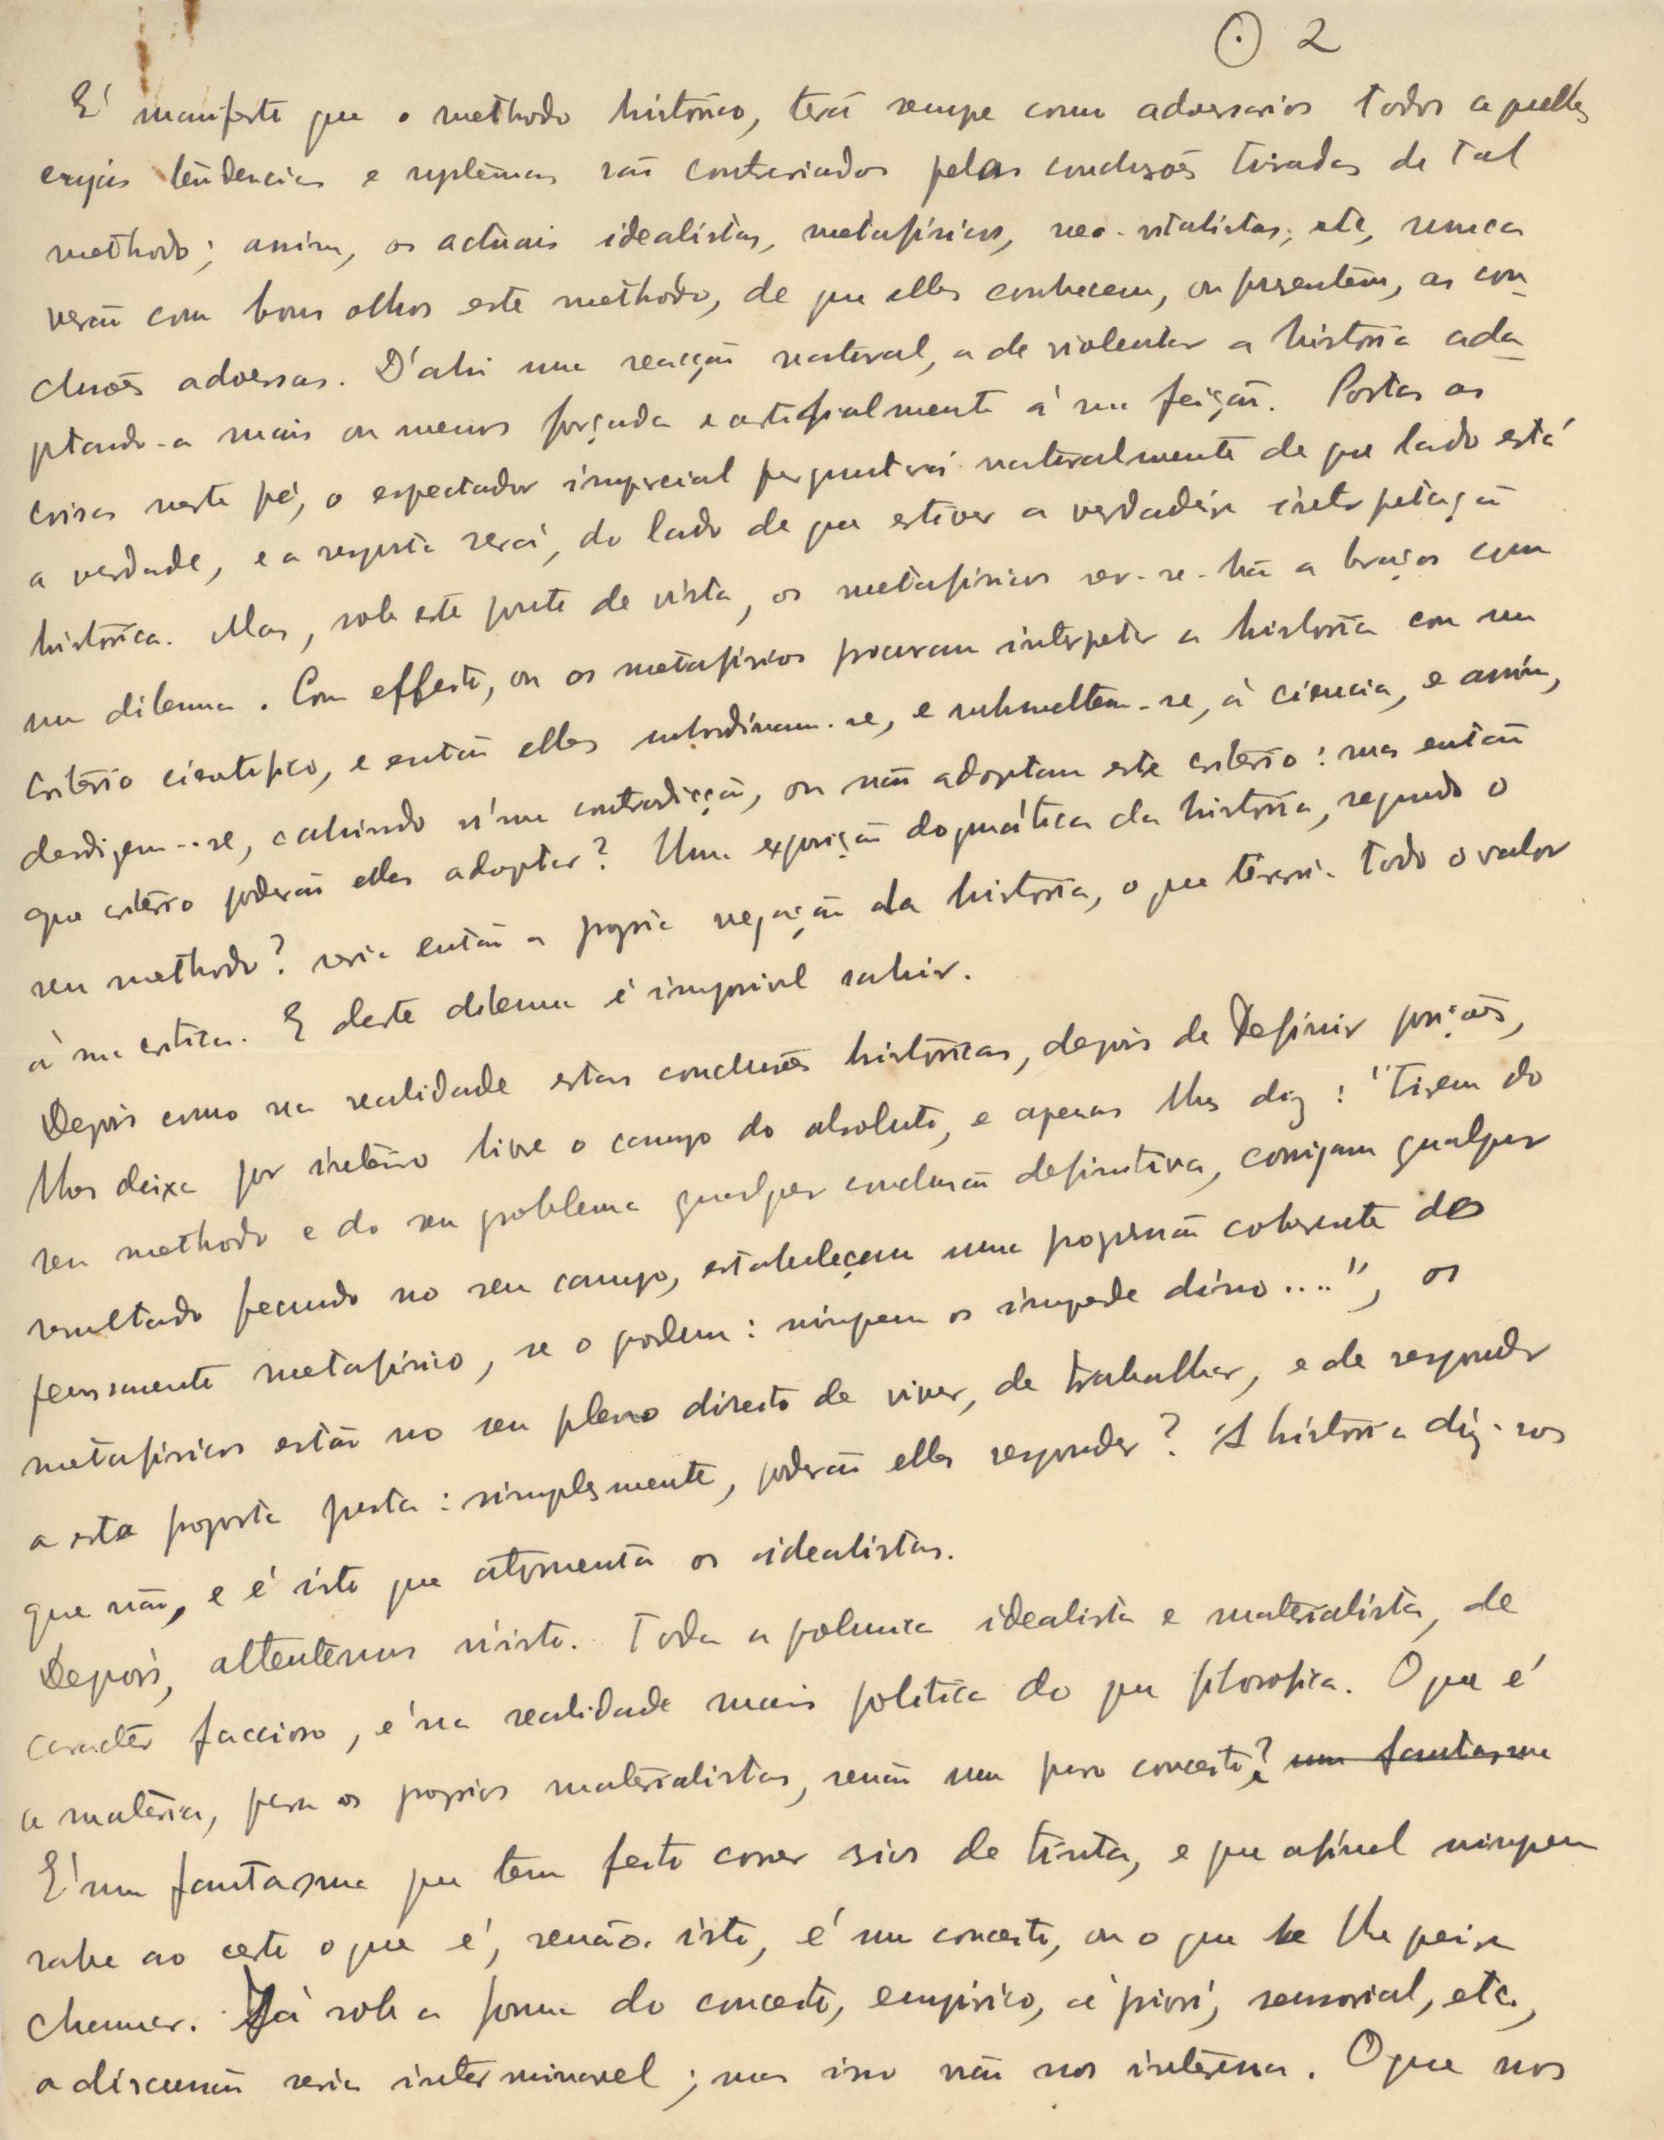 ⊙ 2
É manifesto que o methodo histórico, terá sempre como adversarios todos aquelles
cujas tendencias e systemas são contrariados pelas conclusões tiradas de tal
methodo; assim, os actuais idealistas, metafísicos, neo-vitalistas, etc, nunca
verão com bons olhos este methodo, de que elles conhecem, ou presentem, as con-
clusões adversas. D'ahi uma reacção natural, a de violentar a história ada-
ptando-a mais ou menos forçada e artificialmente á sua feição. Postas as
coisas neste pé, o espectador imparcial perguntará naturalmente de que lado está
a verdade, e a resposta será, do lado de que estiver a verdadeira interpretação
histórica. Mas, sob este ponto de vista, os metafísicos ver-se-hão a braços com
um dilemma. Com effeito, ou os metafísicos procuram interpretar a história com um
critério cientifico, e então elles subordinam-se, e submettem-se, á ciencia, e assim,
desdizem-se, cahindo n'uma contradicção, ou não adoptam este critério: mas então
que critério poderão elles adoptar? Uma exposição dogmática da história, segundo o
seu methodo? seria então a propria negação da história, o que tiraria todo o valor
á sua critica. E deste dilemma é impossivel sahir.
Depois como na realidade estas conclusões históricas, depois de definir posições,
lhes deixa por inteiro livre o campo do absoluto, e apenas lhes diz: "Tirem do
seu methodo e do seu problema qualquer conclusão definitiva, consigam qualquer
resultado fecundo no seu campo, estabeleçam uma progressão coherente do
pensamento metafísico, se o podem: ninguem os impede disso....", os
metafísicos estão no seu pleno direito de viver, de trabalhar, e de responder
a esta proposta justa: simplesmente, poderão elles responder? A história diz-nos
que não, e é isto que atormenta os idealistas.
Depois, attentemos n'isto. Toda a polemica idealista e materialista, de
caracter faccioso, é na realidade mais politica do que filosofica. O que é
a materia, para os proprios materialistas, senão um puro conceito? um fantasma
É um fantasma que tem feito correr rios de tinta, e que afinal ninguem
sabe ao certo o que é, senão isto, é um conceito, ou o que se lhe queira
chamar. Já sob a forma do conceito, empirico, á priori, sensorial, etc.,
a discussão seria interminavel; mas isso não nos interessa. O que nos